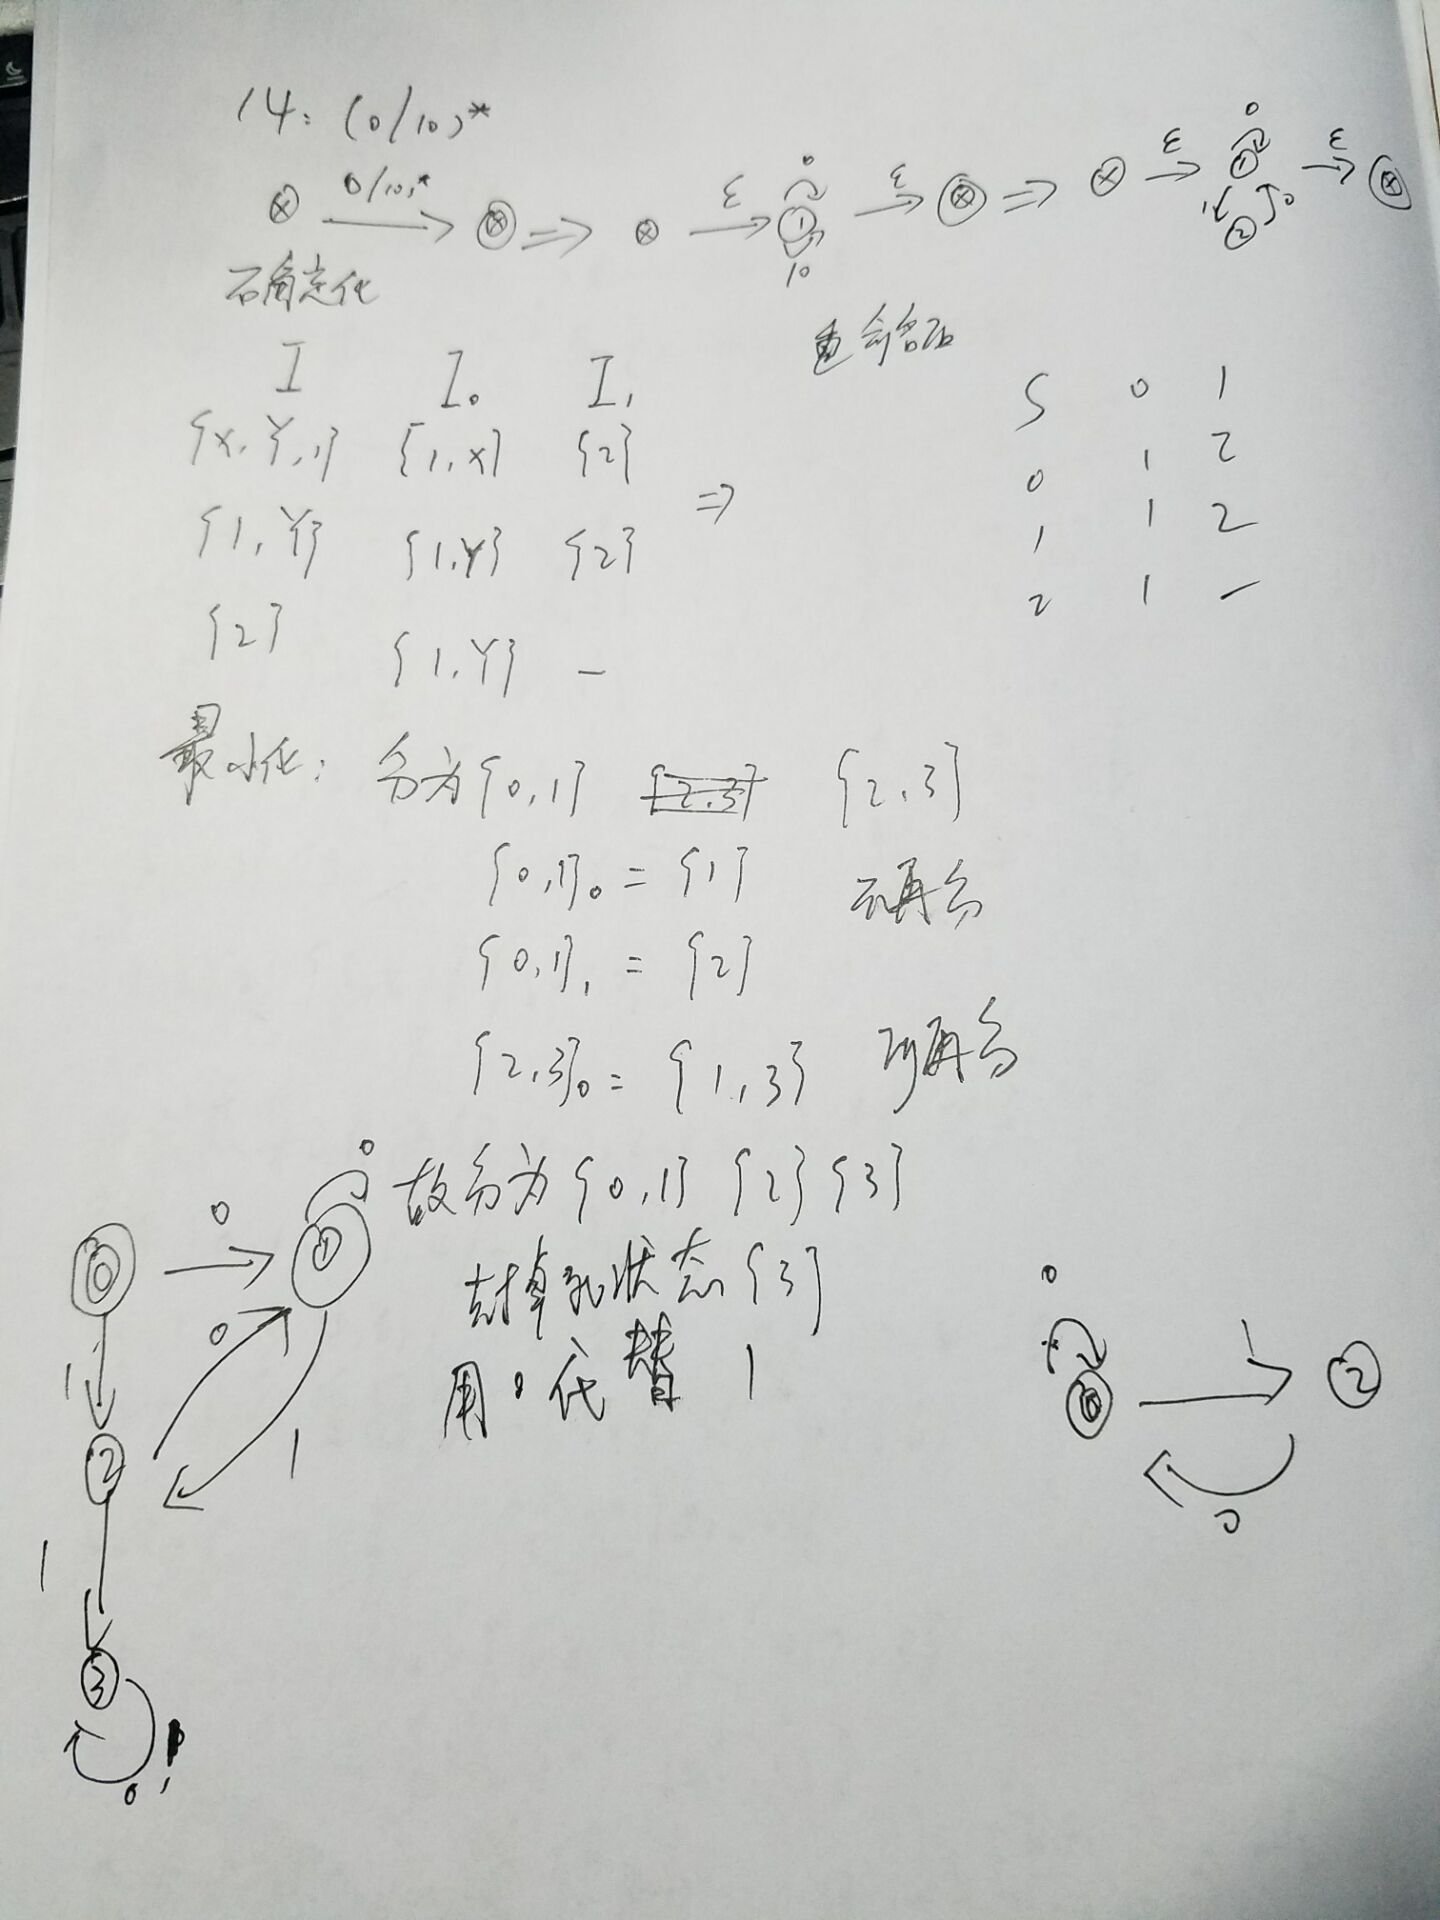 14: (0/10)*
X 0/10)* X ⇒ X ε 1 0 10 ε X ⇒ X ε 1 0 1 2 0 ε X
确定化
重命名后
I I₀ I₁
{X,Y,1} {1,X} {2}
{1,Y} {1,Y} {2} ⇒
{2} {1,Y} —
S 0 1
0 1 2
1 1 2
2 1 —
最小化: 分为{0,1} {2,3}
{0,1}₀ = {1} 不再分
{0,1}₁ = {2}
{2,3}₀ = {1,3} 可再分
故分为{0,1} {2} {3}
去掉死状态{3}
用0代替 1
0 0 1 0
1 0 1
2
1
3
0 1
0
0 1 2
0